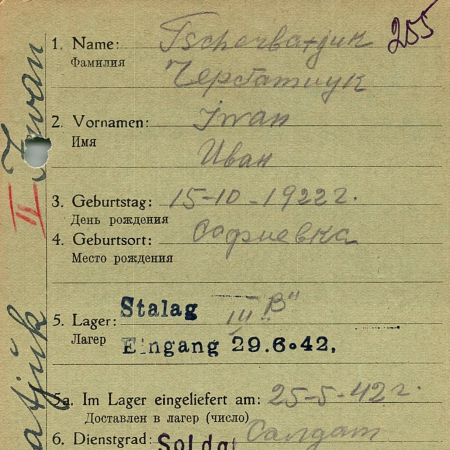 255
1. Name: Tscherbatjuk
Фамилия Черbатиук
2. Vornamen: Iwan
Имя Иван
3. Geburtstag: 15-10-1922г.
День рождения
4. Geburtsort: Софиевка
Место рождения
5. Lager: Stalag III "B"
Лагер Eingang 29.6.42,
5a. Im Lager eingeliefert am: 25-5-42г.
Доставлен в лагер (число)
6. Dienstgrad: Soldat Салдат
II Iwan